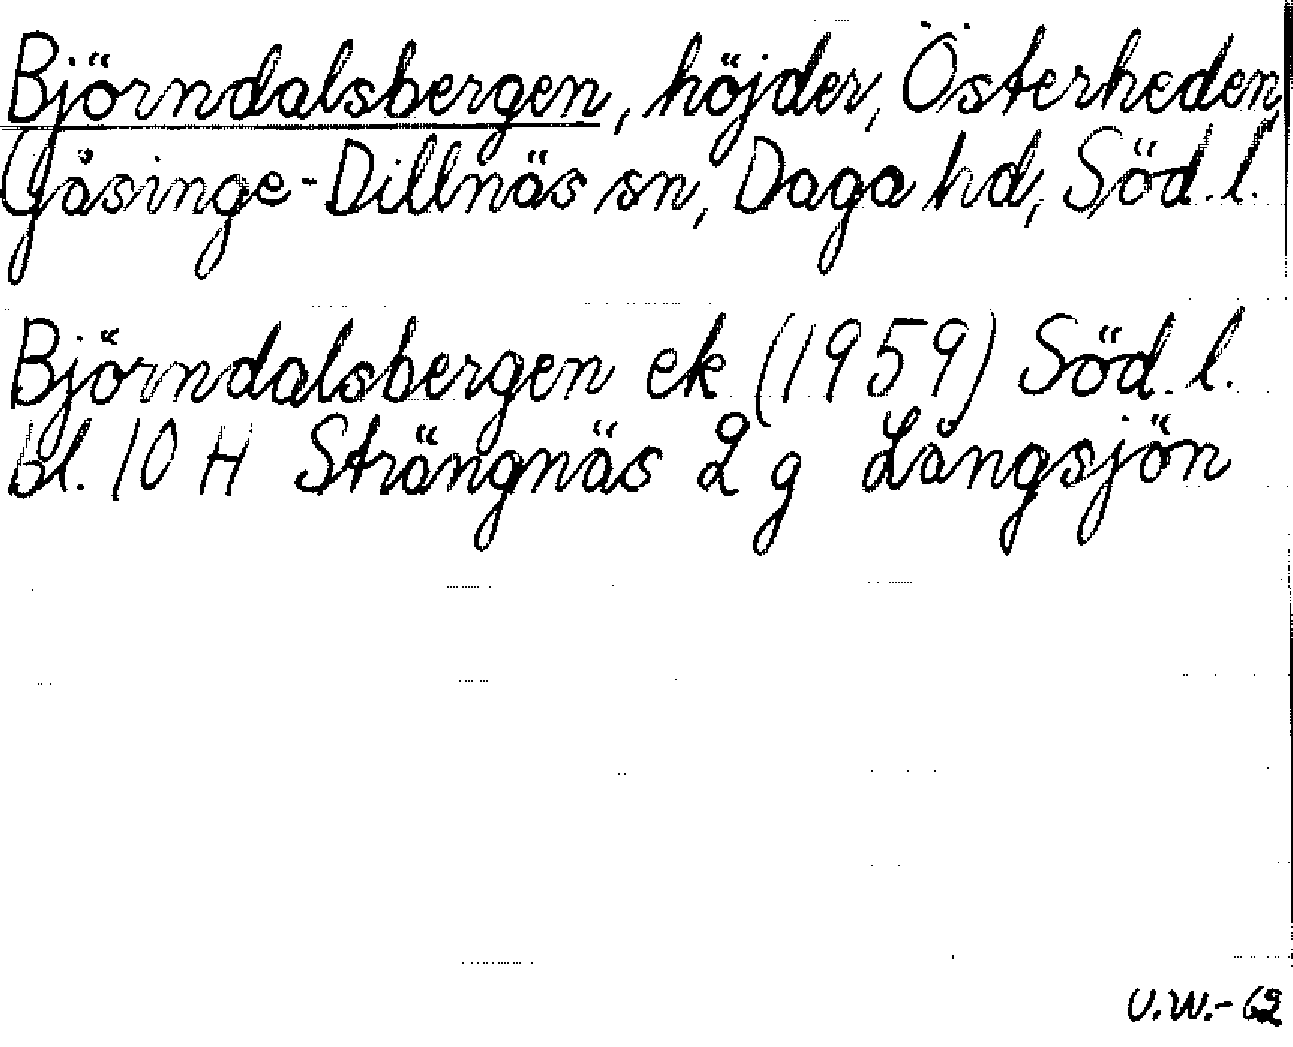 Björndalsbergen, höjder, Österheden,
Gåsinge-Dillnäs sn, Daga hd, Söd. l.
Björndalsbergen ek (1959) Söd. l.
bl. 10 H Strängnäs 2 g Långsjön
U.W.-62